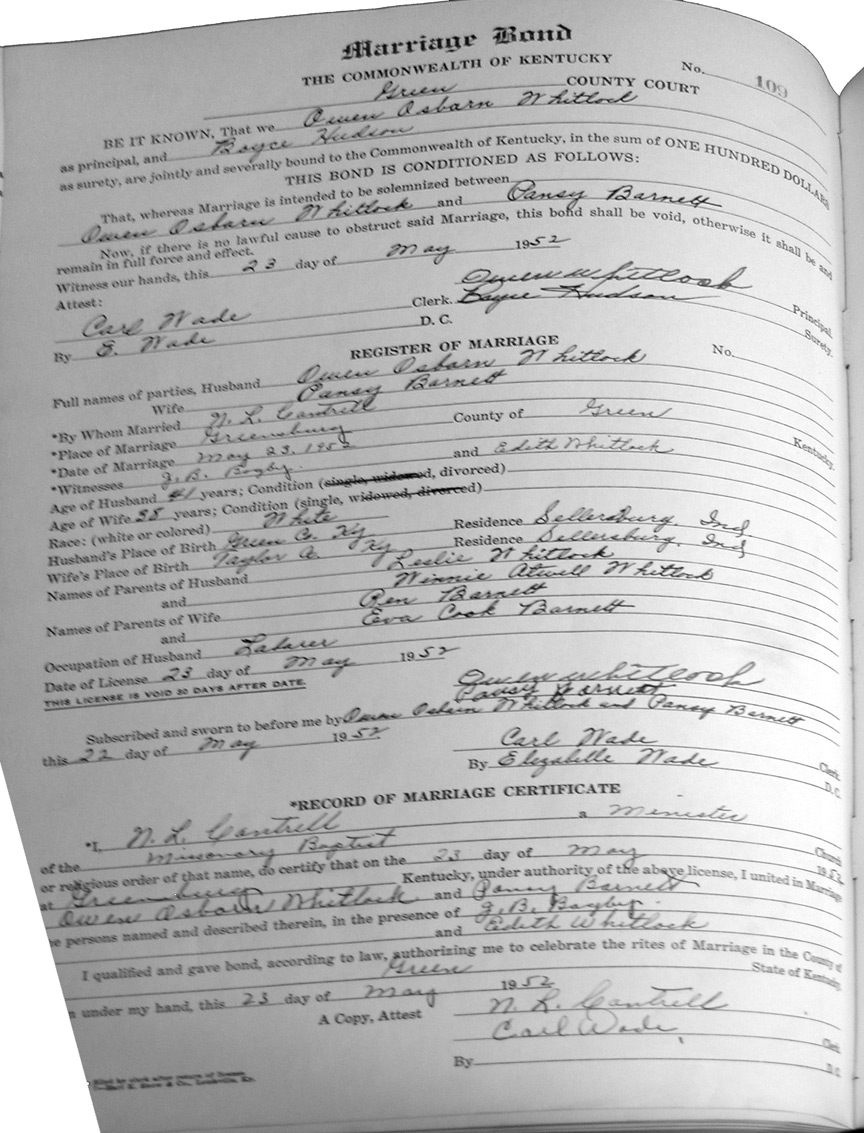 Marriage Bond
THE COMMONWEALTH OF KENTUCKY
No. 109
Green COUNTY COURT
BE IT KNOWN, That we Owen Osbarn Whitlock
as principal, and Bayce Hudson
as surety, are jointly and severally bound to the Commonwealth of Kentucky, in the sum of ONE HUNDRED DOLLARS
THIS BOND IS CONDITIONED AS FOLLOWS:
That, whereas Marriage is intended to be solemnized between
Owen Osbarn Whitlock and Pansy Barnett
Now, if there is no lawful cause to obstruct said Marriage, this bond shall be void, otherwise it shall be and
remain in full force and effect.
Witness our hands, this 23 day of May 1952
Attest: Owen Whitlock Principal.
Carl Wade Clerk. Bayce Hudson Surety.
By E. Wade D. C.
REGISTER OF MARRIAGE
No.
Full names of parties, Husband Owen Osbarn Whitlock
Wife Pansy Barnett
*By Whom Married N. L. Cantrell
*Place of Marriage Greensburg County of Green Kentucky.
*Date of Marriage May 23, 1952
*Witnesses J. B. Bagby. and Edith Whitlock
Age of Husband 41 years; Condition (single, widowed, divorced)
Age of Wife 38 years; Condition (single, widowed, divorced)
Race: (white or colored) White
Husband's Place of Birth Green Co. Ky Residence Sellersburg, Ind
Wife's Place of Birth Taylor Co. Ky Residence Sellersburg, Ind
Names of Parents of Husband Leslie Whitlock
and Winnie Atwell Whitlock
Names of Parents of Wife Ren Barnett
and Eva Cook Barnett
Occupation of Husband Labarer
Date of License 23 day of May 1952
THIS LICENSE IS VOID 30 DAYS AFTER DATE.
Owen Whitlock
Pansy Barnett
Subscribed and sworn to before me by Owen Osbarn Whitlock and Pansy Barnett
this 22 day of May 1952
Carl Wade Clerk.
By Elizabelle Wade D. C.
*RECORD OF MARRIAGE CERTIFICATE
*I, N. L. Cantrell a Minister
of the Missionary Baptist Church
or religious order of that name, do certify that on the 23 day of May 1952
at Greensburg Kentucky, under authority of the above license, I united in Marriage
Owen Osborn Whitlock and Pansy Barnett
e persons named and described therein, in the presence of J. B. Bagby.
and Edith Whitlock
I qualified and gave bond, according to law, authorizing me to celebrate the rites of Marriage in the County of
Green State of Kentucky.
n under my hand, this 23 day of May 1952
N. L. Cantrell
A Copy, Attest Carl Wade Clerk
By D. C.